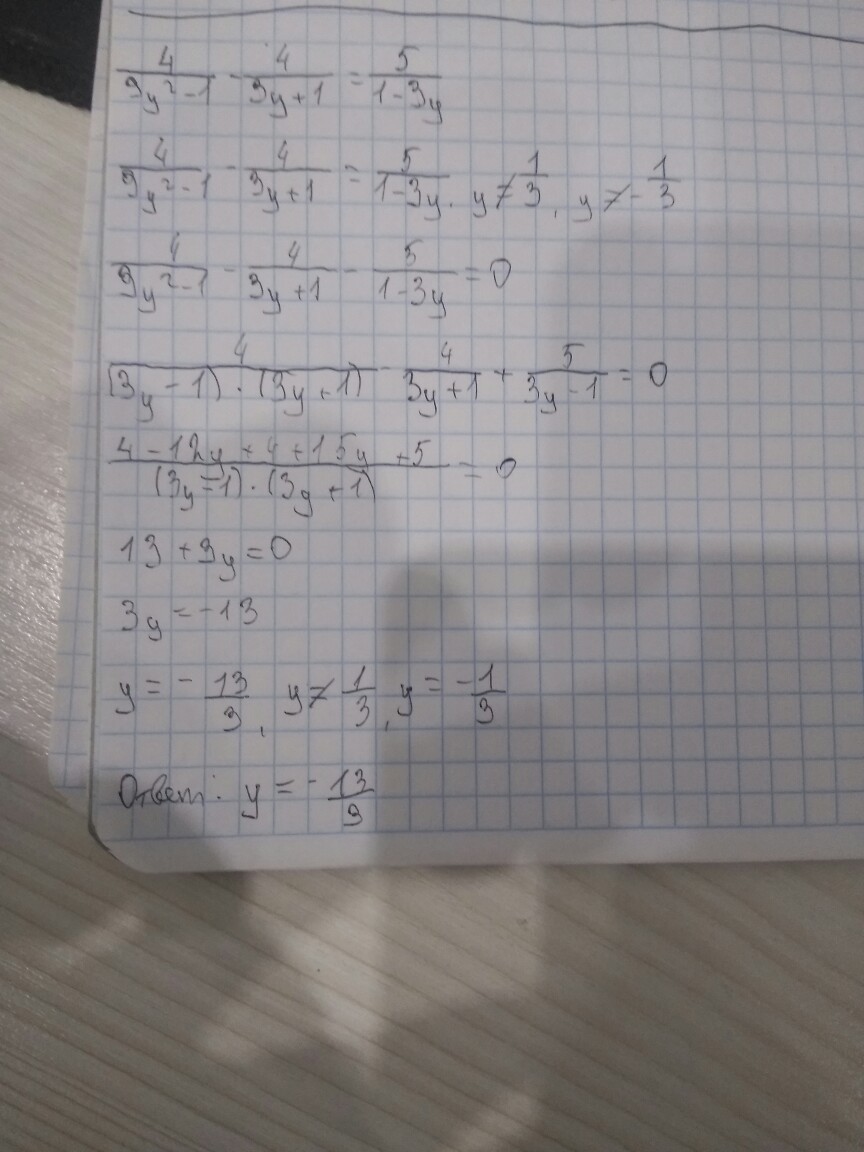 4/(9y²-1) - 4/(3y+1) = 5/(1-3y)
4/(9y²-1) - 4/(3y+1) = 5/(1-3y). y≠1/3, y≠-1/3
4/(9y²-1) - 4/(3y+1) - 5/(1-3y) = 0
4/((3y-1)·(3y+1)) - 4/(3y+1) + 5/(3y-1) = 0
(4-12y+4+15y+5)/((3y-1)·(3y+1)) = 0
13+3y=0
3y=-13
y=-13/3, y≠1/3, y=-1/3
Ответ: y=-13/3